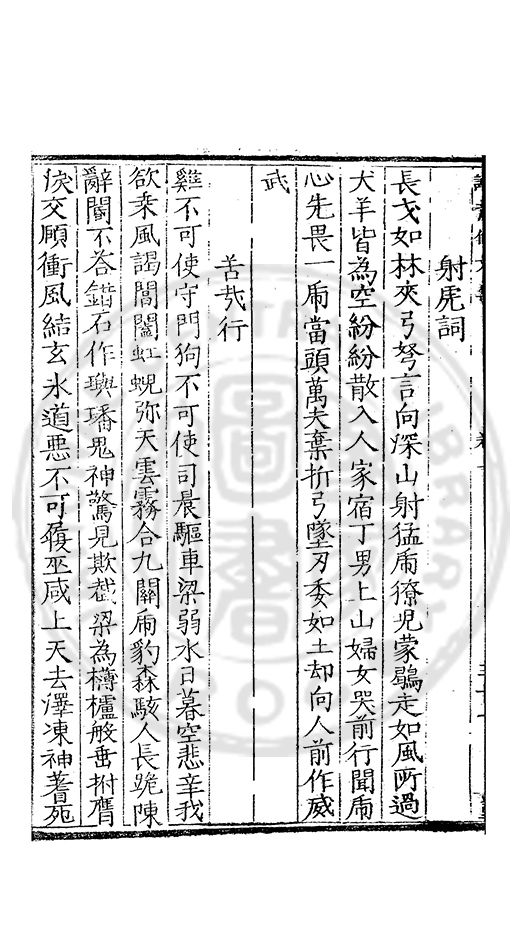 射虎詞
長戈如林夾弓弩言向深山射猛虎獠児蒙鶡走如風所過
犬羊皆為空紛紛散入人家宿丁男上山婦女哭前行聞虎
心先畏一虎當頭萬夫棄折弓墜刃委如土却向人前作威
武
苦哉行
雞不可使守門狗不可使司晨驅車梁弱水日暮空悲辛我
欲乘風謁閶闔虹蜺弥天雲霧合九關虎豹森駭人長跪陳
辭閽不荅錯石作璵璠鬼神驚見欺截梁為欂櫨般倕拊膺
俟交願衝風結玄氷道惡不可履巫咸上天去澤凍神蓍死